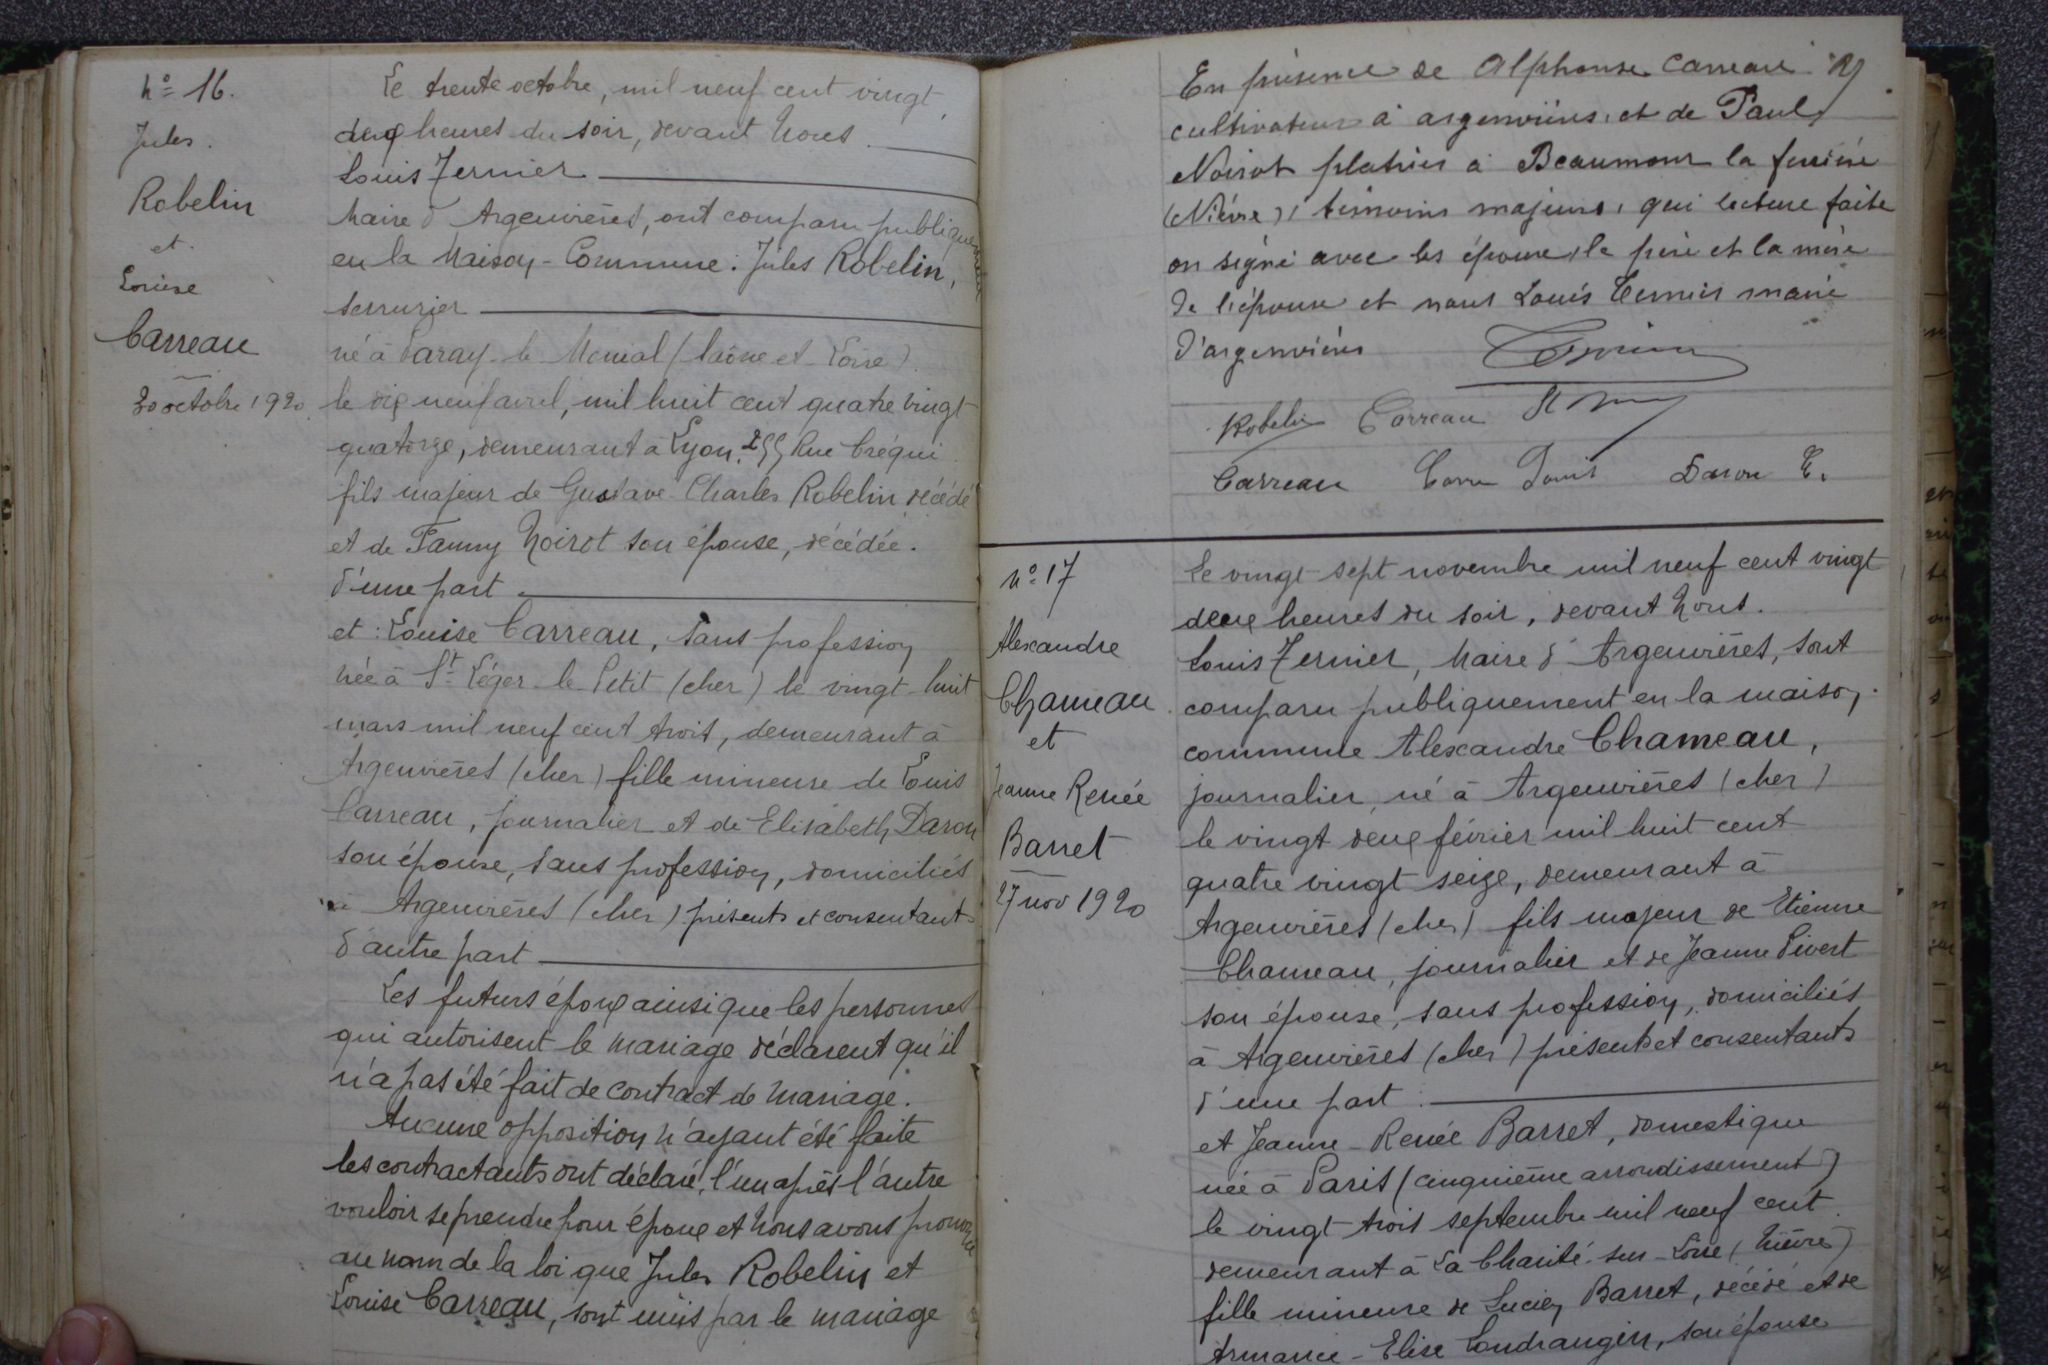 n° 16.
Jules
Robelin
et
Louise
Carreau
30 octobre 1920
Le trente octobre, mil neuf cent vingt,
deux heures du soir, devant Nous
Louis Ternier
Maire d'Argenvières, ont comparu publiquement
en la Maison-Commune : Jules Robelin,
serrurier
né à Paray-le-Monial (Saône et Loire)
le dix neuf avril, mil huit cent quatre vingt
quatorze, demeurant à Lyon, 255 Rue Créqui
fils majeur de Gustave-Charles Robelin décédé
et de Fanny Noirot son épouse, décédée.
d'une part
et : Louise Carreau, sans profession
née à St Léger-le-Petit (cher) le vingt-huit
mars mil neuf cent trois, demeurant à
Argenvières (cher) fille mineure de Louis
Carreau, journalier et de Elisabeth Daron
son épouse, sans profession, domiciliés
à Argenvières (cher) présents et consentants
d'autre part
Les futurs époux ainsi que les personnes
qui autorisent le mariage déclarent qu'il
n'a pas été fait de contract de mariage.
Aucune opposition n'ayant été faite
les contractants ont déclaré, l'un après l'autre
vouloir se prendre pour époux et Nous avons prononcé
au nom de la loi que Jules Robelin et
Louise Carreau, sont unis par le mariage
En présence de Alphonse Carreau
cultivateur à argenvières, et de Paul
Noirot platrier à Beaumont la ferrière
(Nièvre), témoins majeurs, qui lecture faite
on signé avec les époux, le père et la mère
de l'épouse et nous Louis Ternier maire
d'argenvières
Robelin Carreau
Carreau Louis Daron E.
n° 17
Alexandre
Chameau
et
Jeanne Renée
Barret
27 nov 1920
Le vingt-sept novembre mil neuf cent vingt
deux heures du soir, devant Nous.
Louis Ternier, Maire d'Argenvières, sont
comparu publiquement en la maison
commune Alexandre Chameau,
journalier né à Argenvières (cher)
le vingt deux février mil huit cent
quatre vingt seize, demeurant à
Argenvières (cher) fils majeur de Etienne
Chameau, journalier et de Jeanne Pivert
son épouse, sans profession, domiciliés
à Argenvières (cher) présents et consentants
d'une part
et Jeanne-Renée Barret, domestique
née à Paris (cinquième arrondissement)
le vingt-trois septembre mil neuf cent
demeurant à La Charité-sur-Loire (Nièvre)
fille mineure de Lucien Barret, décédé et de
Armance-Elise Coudrangin, son épouse